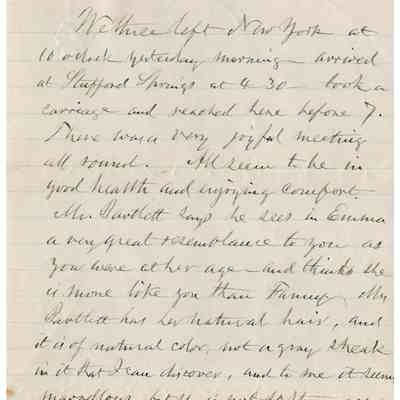 We three left New York at
10 oclock yesterday morning - arrived
at Stafford Springs at 4 30 - took a
carriage and reached here before 7.
There was a very joyful meeting
all round. - All seem to be in
good health and enjoying comfort.
Mr. Bartlett says he sees in Emma
a very great resemblance to you as
you were at her age - and thinks she
is more like you than Fanny. Mrs
Bartlett has her natural hair, and
it is of natural color, not a gray streak
in it that I can discover, and to me it seems
marvellous, but it is not